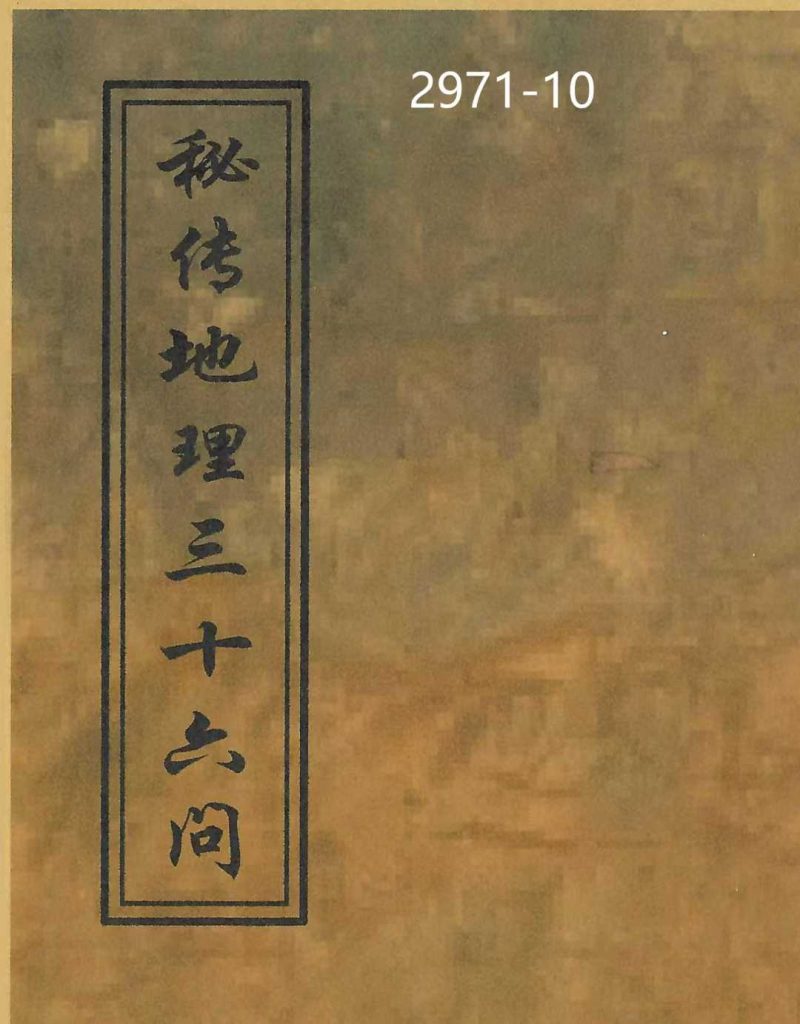 2971-10
秘传地理三十六问